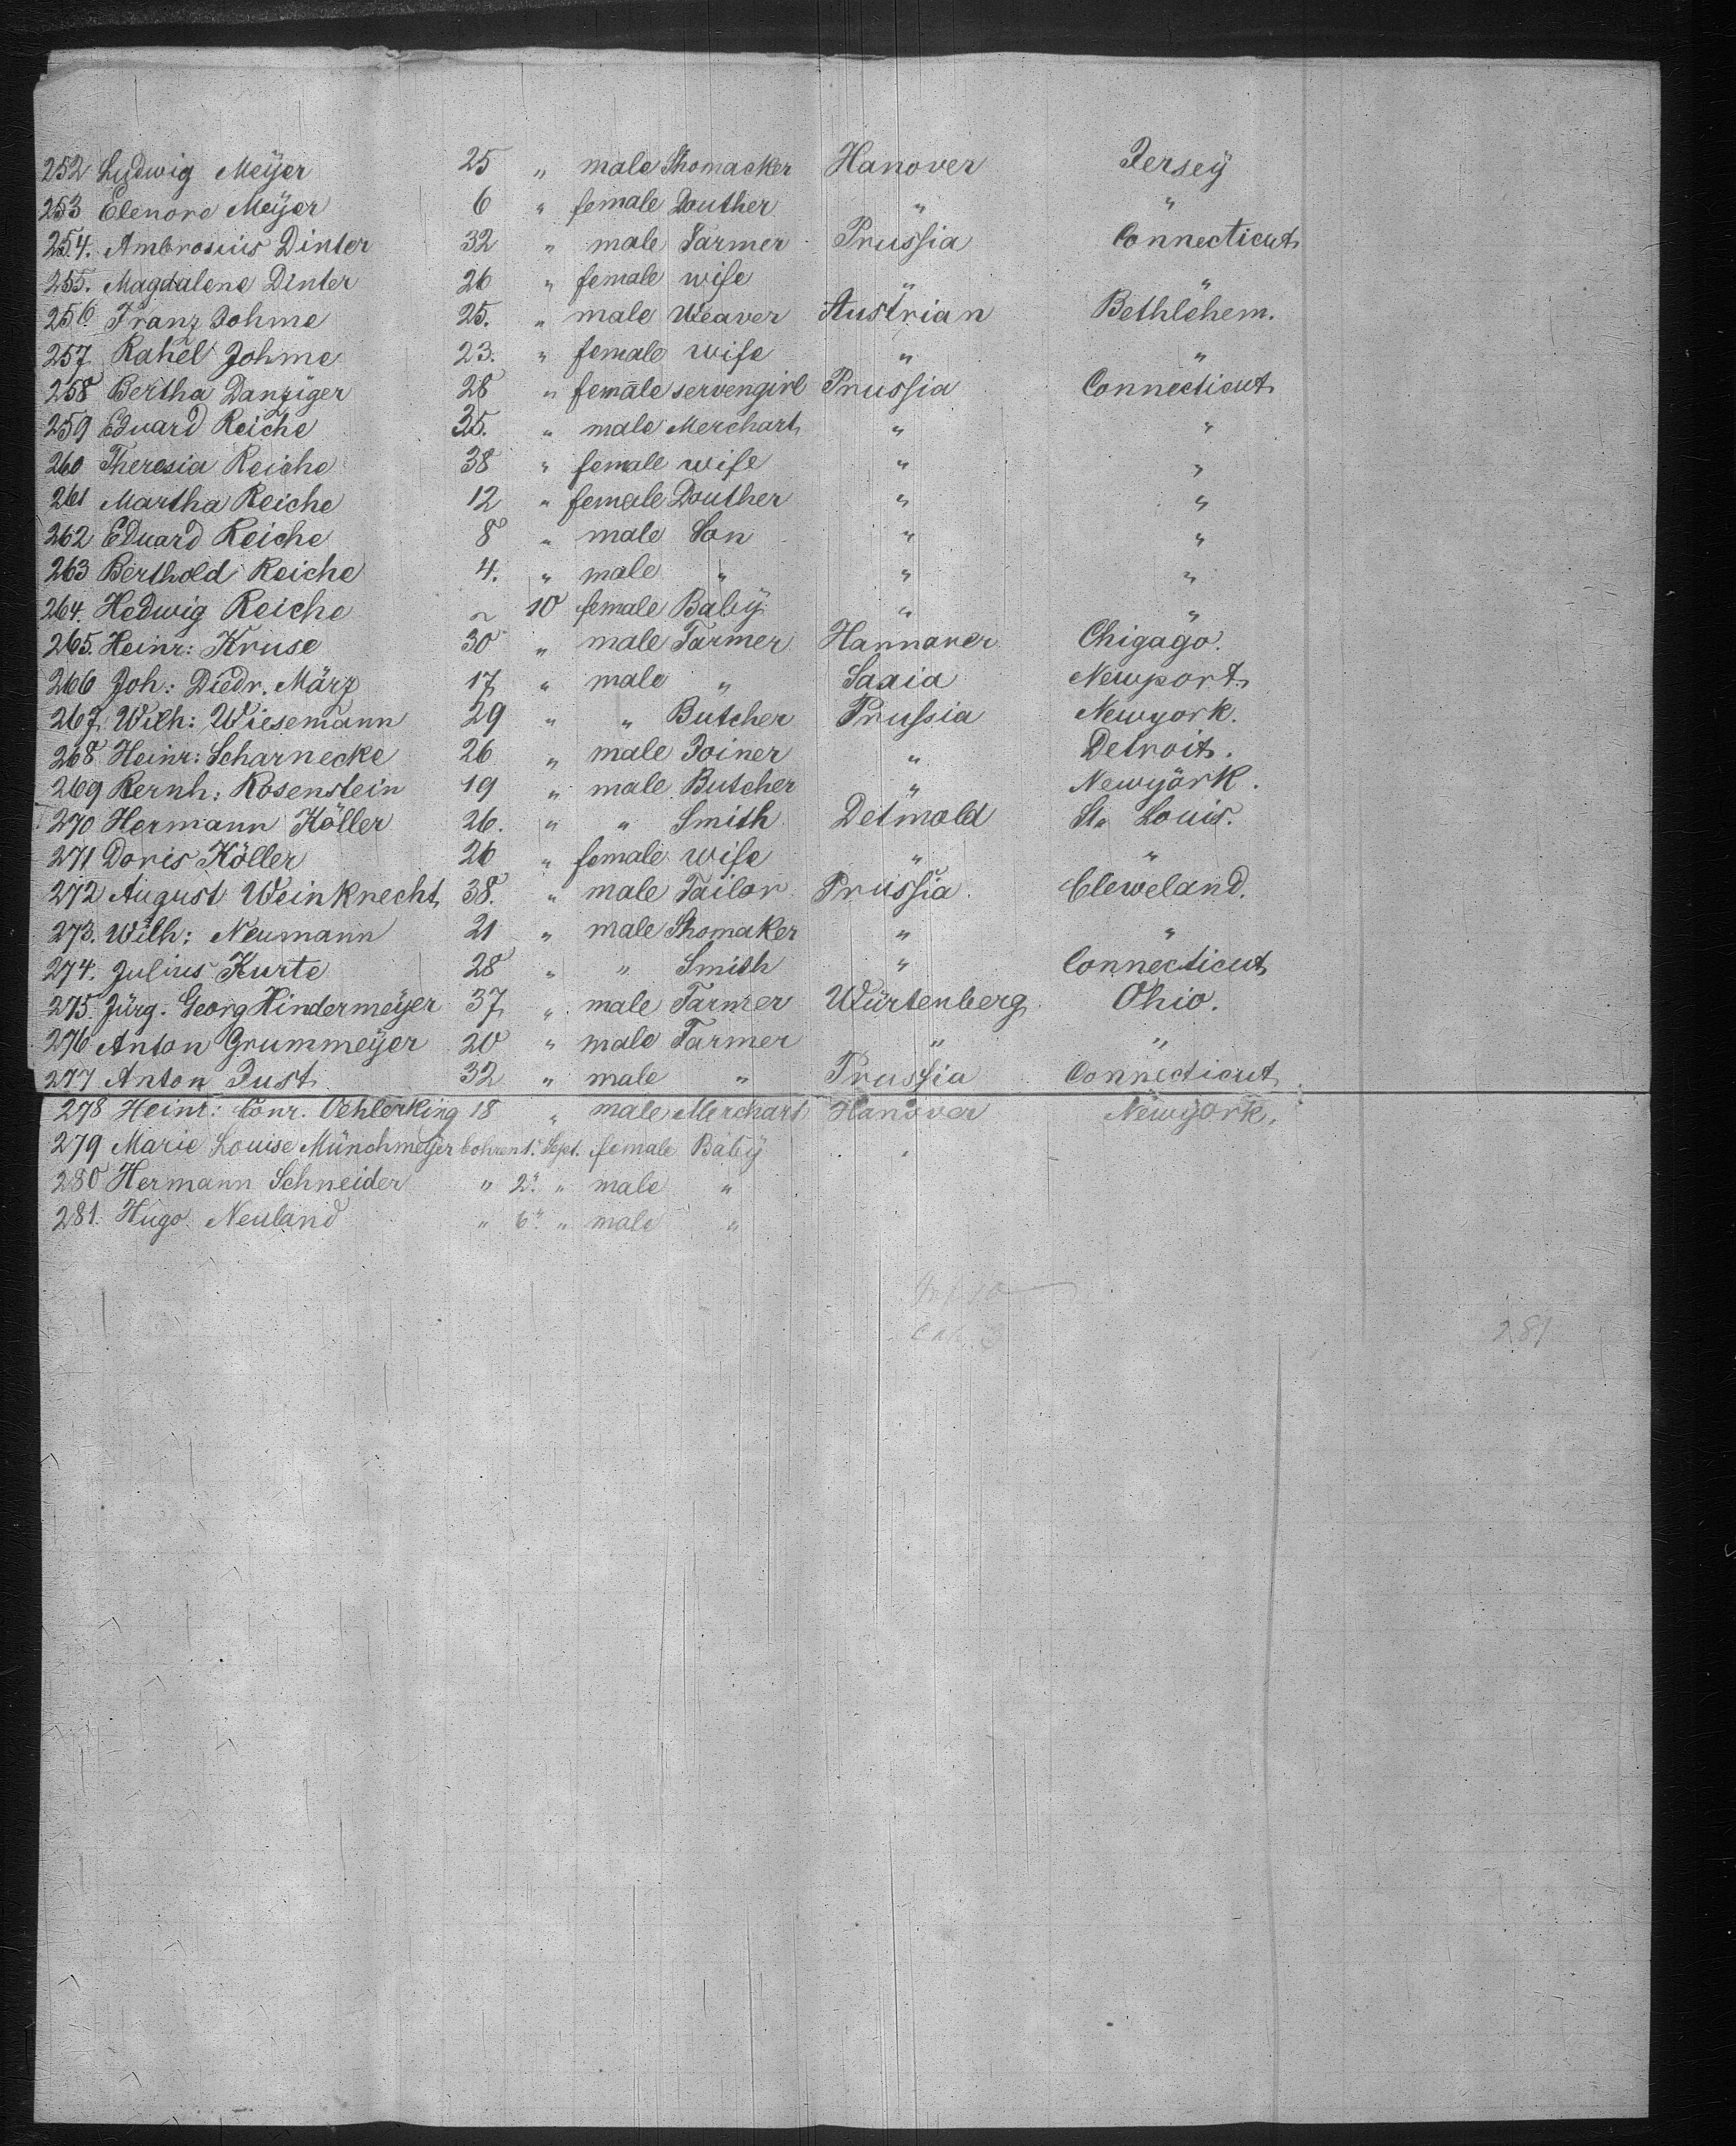 252 Ludwig Meÿer 25 " male Shomacker Hanover Jersey
253 Elenore Meÿer 6 " female Douther " "
254. Ambrosius Dinter 32 " male Farmer Prussia Connecticut
255. Magdalene Dinter 26 " female wife " "
256. Franz Johme 25. " male Weaver Austrian Bethlehem.
257 Rahel Johme 23. " female wife " "
258 Bertha Danziger 28 " female servengirl Prussia Connecticut
259 Eduard Reiche 35. " male Merchart " "
260 Theresia Reiche 38 " female wife " "
261 Martha Reiche 12 " female Douther " "
262 Eduard Reiche 8 " male Son " "
263 Berthold Reiche 4. " male " " "
264. Hedwig Reiche ~ 10 female Baby " "
265. Heinr: Kruse 30 " male Farmer Hannover Chigago.
266 Joh: Diedr. März 17 " male " Saxia Newport.
267. Wilh: Wiesemann 29 " " Butcher Prussia Newyork.
268. Heinr: Scharnecke 26 " male Joiner " Detroit.
269 Bernh: Rosenstein 19 " male Butcher " Newyork.
270 Hermann Köller 26. " " Smith Detmold St. Louis.
271 Doris Köller 26 " female wife " "
272 August Weinknecht 38. " male Tailor Prussia Cleweland.
273. Wilh: Neumann 21 " male Shomaker " "
274. Julius Kurte 28 " " Smith " Connecticut
275. Jürg. Georg Hindermeÿer 37 " male Farmer Würtenberg Ohio.
276 Anton Grummeÿer 20 " male Farmer " "
277 Anton Just 32 " male " Prussia Connecticut
278 Heinr: Conr. Oehlerking 18 " male Merchart Hanover Newyork.
279 Marie Louise Münchmeÿer bohren 1." Sept. female Baby
280 Hermann Schneider " 2." " male "
281. Hugo Neuland " 6." " male "
281